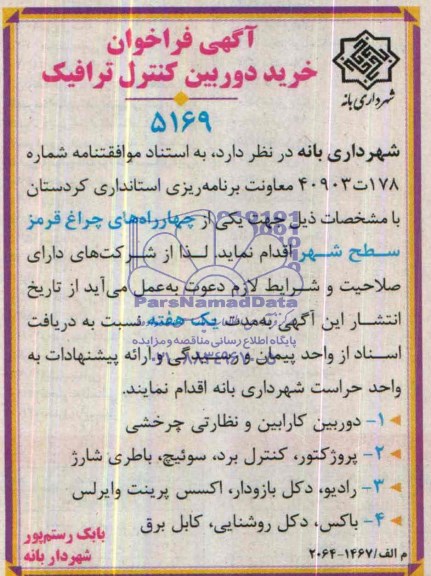 آگهی فراخوان
خرید دوربین کنترل ترافیک
شهرداری بانه
۵۱۶۹
شهرداری بانه در نظر دارد، به استناد موافقتنامه شماره
۱۷۸ت۴۰۹۰۳ معاونت برنامه‌ریزی استانداری کردستان
با مشخصات ذیل جهت یکی از چهارراه‌های چراغ قرمز
سطح شهر اقدام نماید. لذا از شرکت‌های دارای
صلاحیت و شرایط لازم دعوت به‌عمل می‌آید از تاریخ
انتشار این آگهی به‌مدت یک هفته نسبت به دریافت
اسناد از واحد پیمان و رسیدگی و ارائه پیشنهادات به
واحد حراست شهرداری بانه اقدام نمایند.
۱- دوربین کارابین و نظارتی چرخشی
۲- پروژکتور، کنترل برد، سوئیچ، باطری شارژ
۳- رادیو، دکل بازودار، اکسس پرینت وایرلس
۴- باکس، دکل روشنایی، کابل برق
بابک رستم‌پور
شهردار بانه
م الف/۱۴۶۷-۲۰۶۴
ParsNamadData
پایگاه اطلاع رسانی مناقصه و مزایده